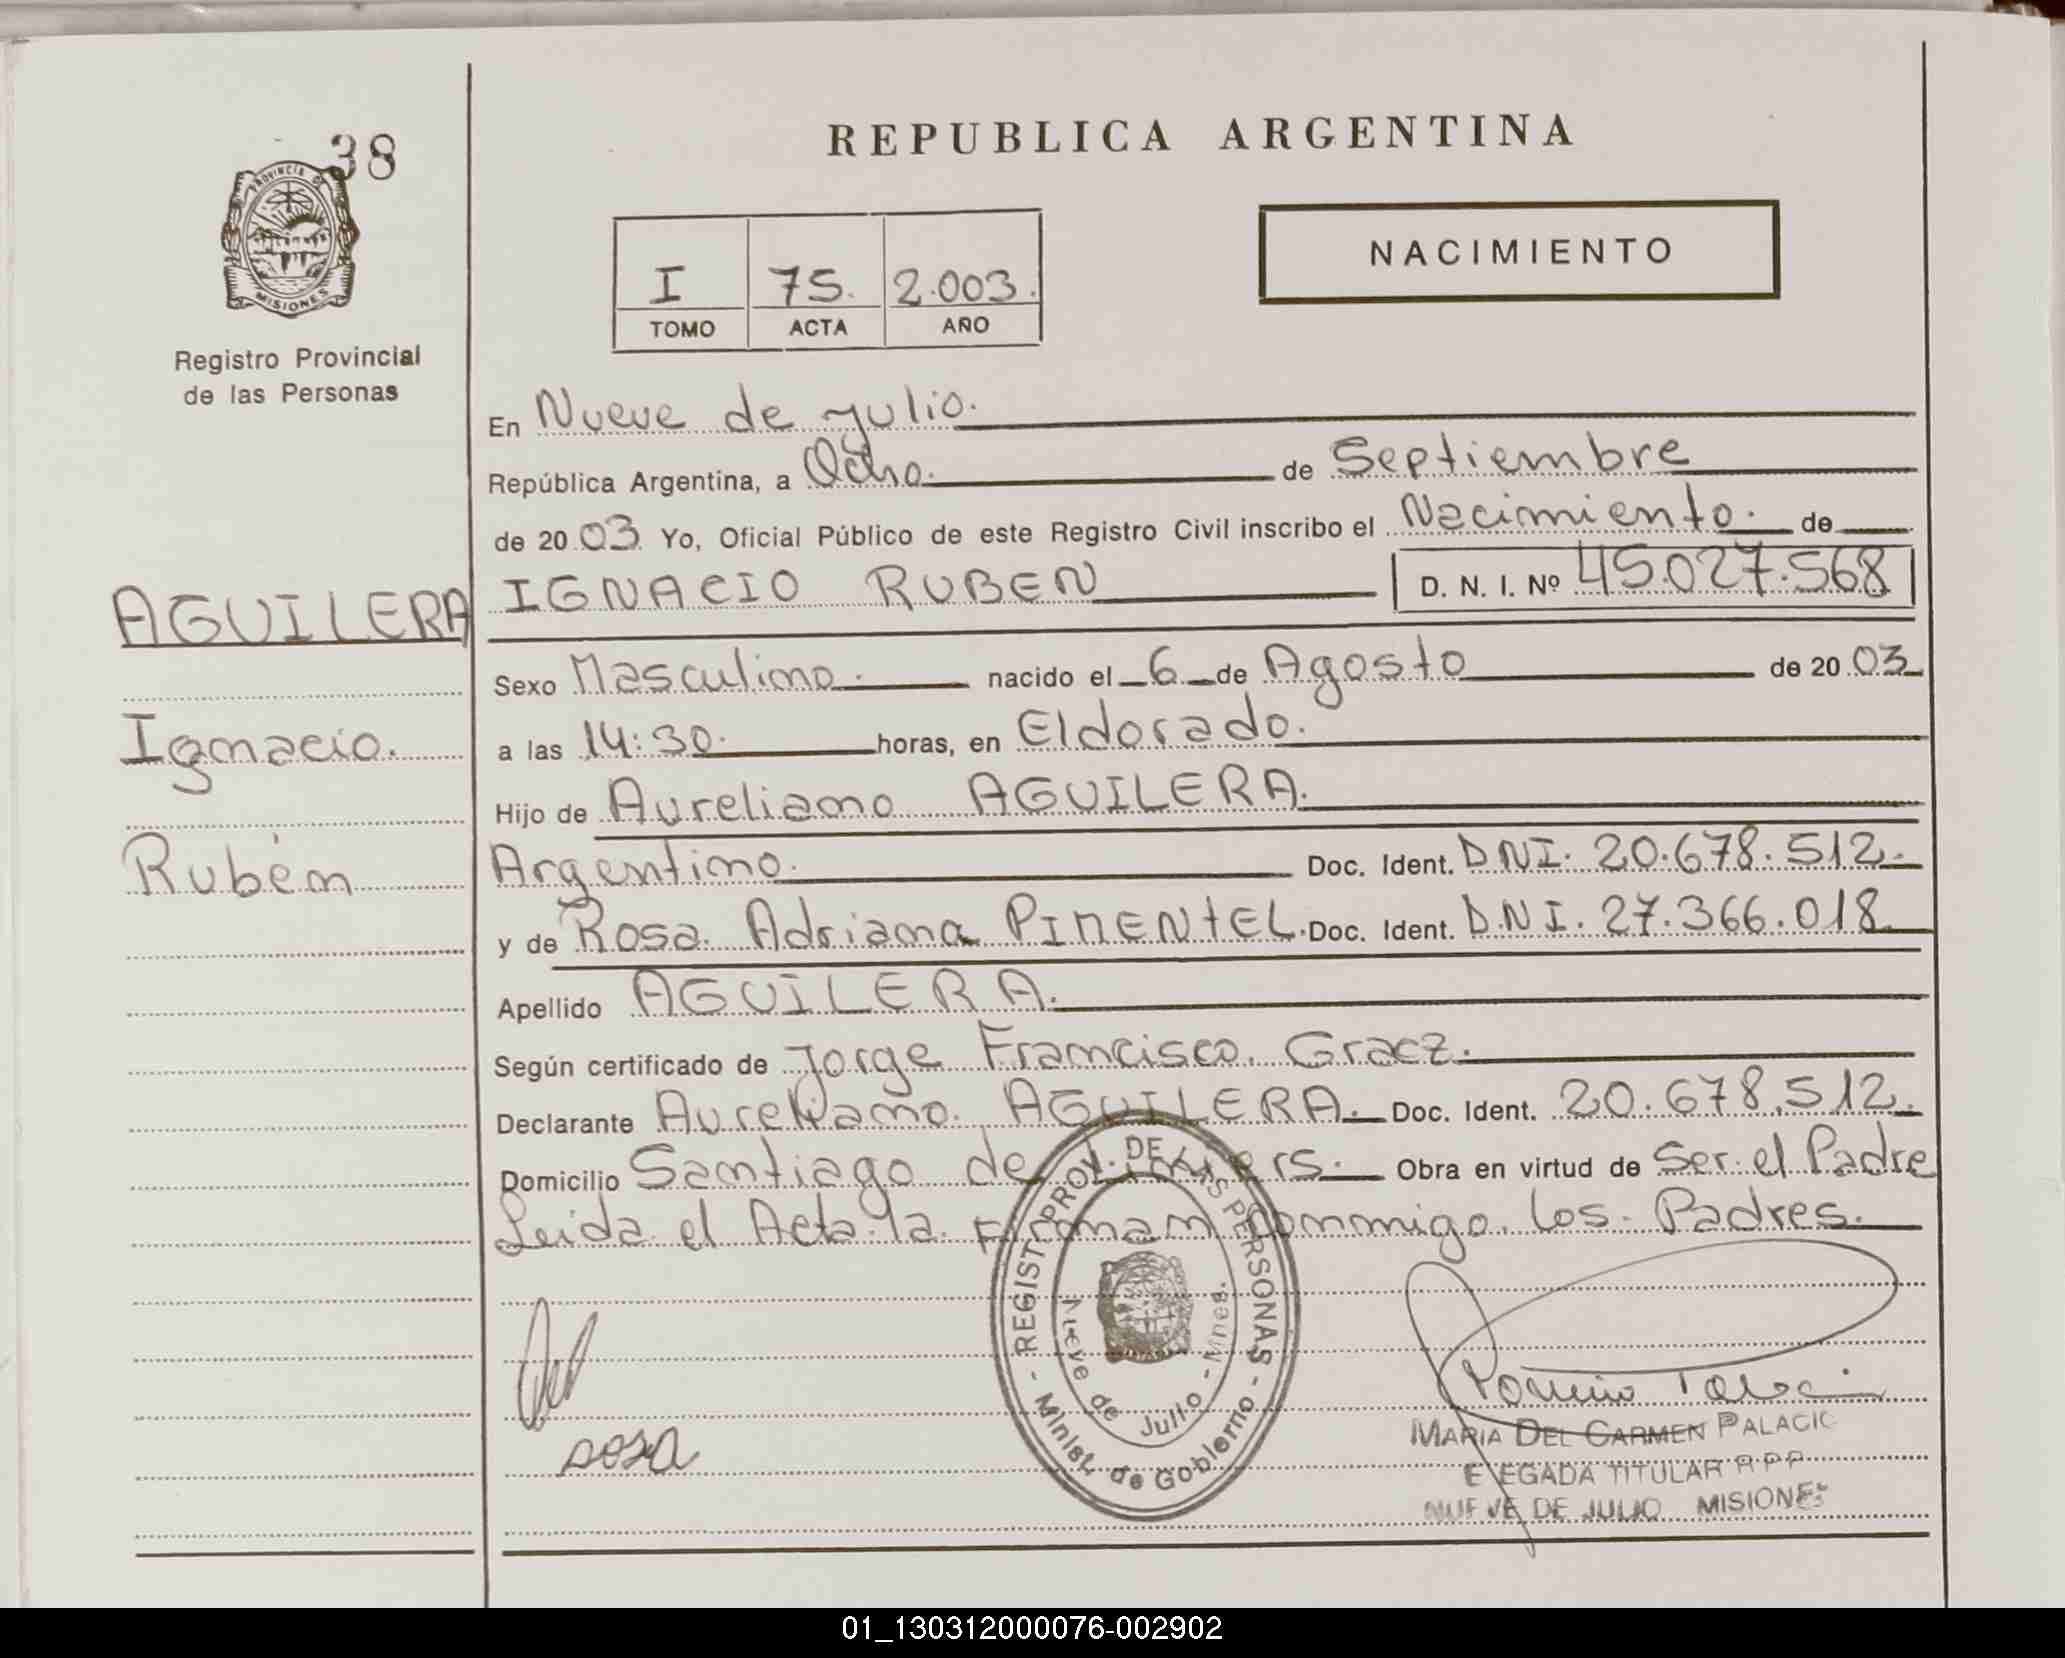 38
REPUBLICA ARGENTINA
PROVINCIA DE
MISIONES
NACIMIENTO
I 75. 2.003.
TOMO ACTA AÑO
Registro Provincial
de las Personas
En Nueve de julio.
República Argentina, a Ocho. de Septiembre
de 20 03 Yo, Oficial Público de este Registro Civil inscribo el Nacimiento. de
AGUILERA IGNACIO RUBEN D. N. I. Nº 45.027.568
Sexo Masculino. nacido el 6 de Agosto de 20 03
Ignacio. a las 14:30. horas, en Eldorado.
Hijo de Aureliano AGUILERA.
Rubén Argentino. Doc. Ident. DNI. 20.678.512.
y de Rosa Adriana PIMENTEL. Doc. Ident. DNI. 27.366.018
Apellido AGUILERA.
Según certificado de Jorge Francisco Gracz.
Declarante Aureliano AGUILERA. Doc. Ident. 20.678.512.
Domicilio Santiago de Liniers. Obra en virtud de Ser el Padre
Leida el Acta la Firman conmigo los Padres.
REGIST. PROV. DE LAS PERSONAS
Nueve de Julio - Mnes.
- Minist. de Gobierno -
rosa
MARIA DEL CARMEN PALACIO
ELEGADA TITULAR R P P
NUEVE DE JULIO MISIONES
01_130312000076-002902